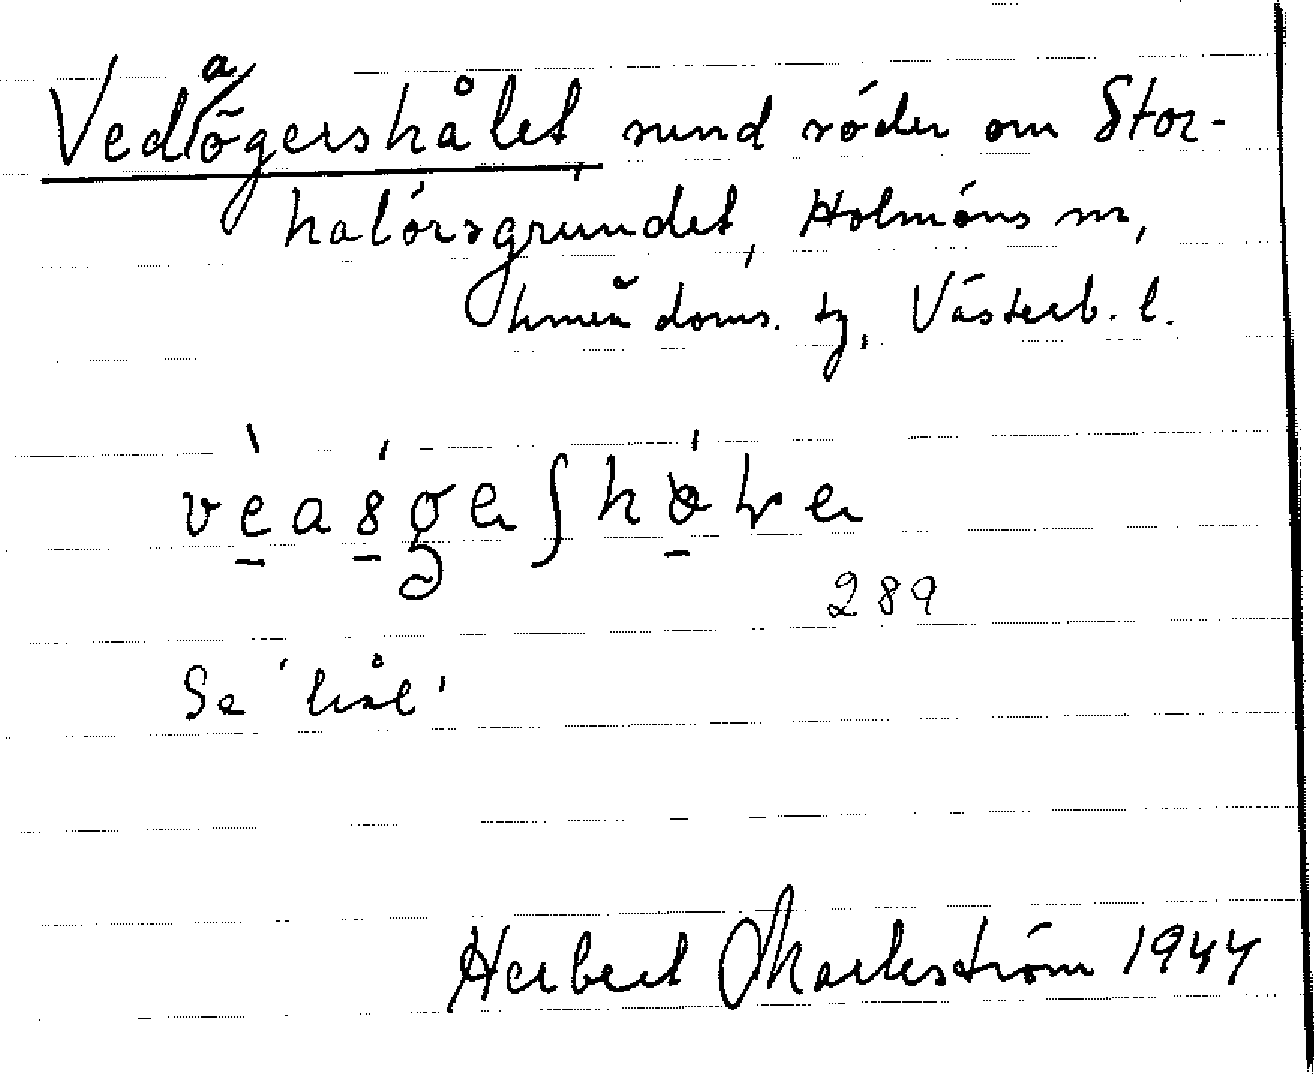 Vedaögershålet, sund söder om Stor-
halörsgrundet, Holmöns sn,
Umeå doms. tg, Västerb. l.
289
Se 'hål'
Herbert Markström 1944